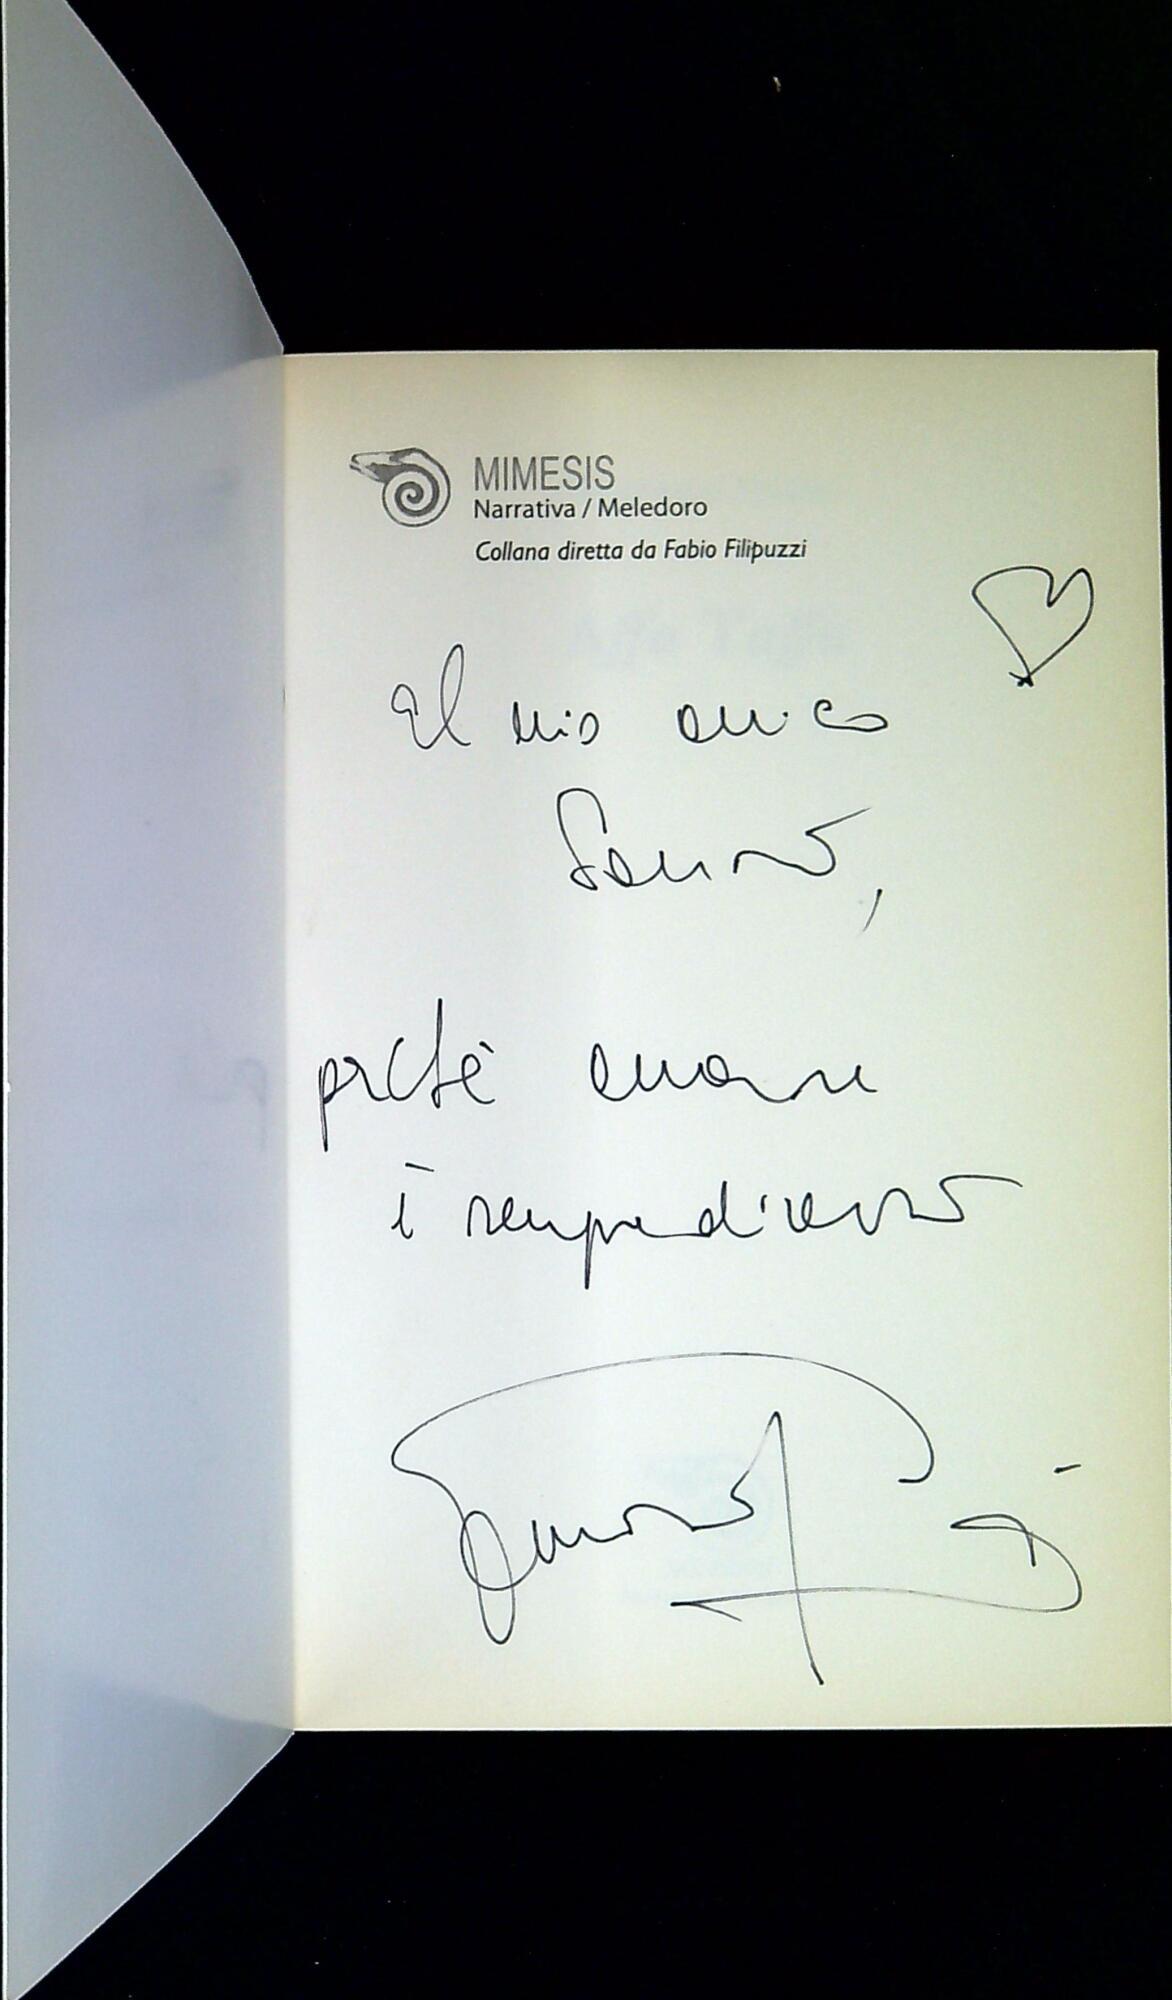 MIMESIS
Narrativa / Meledoro
Collana diretta da Fabio Filipuzzi
Al mio amico
perché amare
è sempre diverso